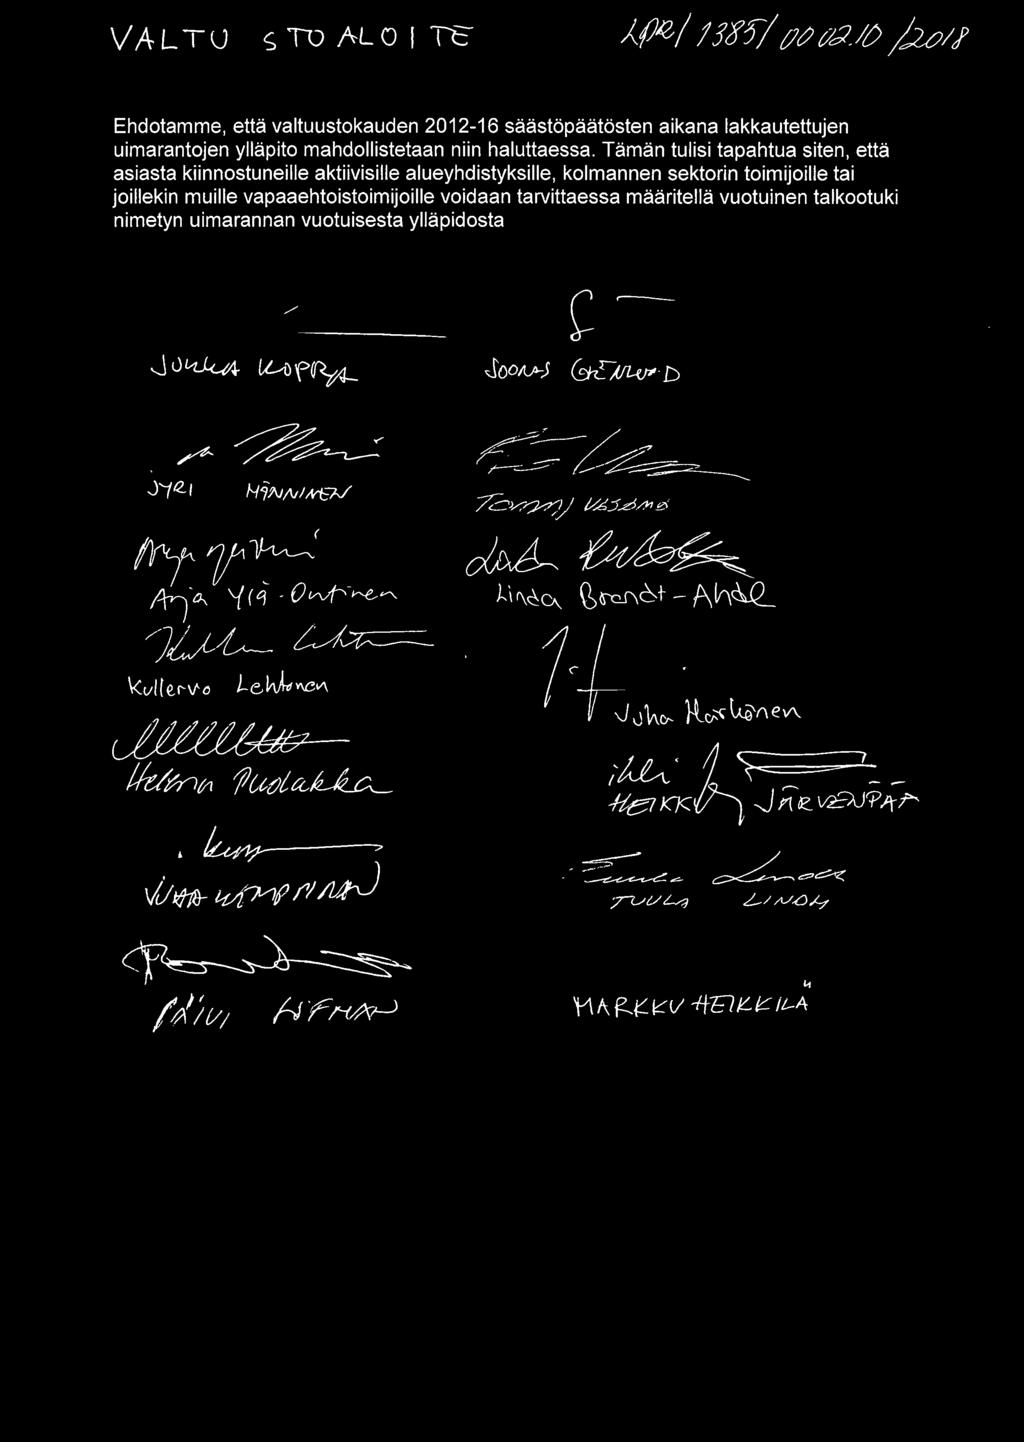 VALTUSTOALOITE
LPR/1385/00 02.10/2018
Ehdotamme, että valtuustokauden 2012-16 säästöpäätösten aikana lakkautettujen
uimarantojen ylläpito mahdollistetaan niin haluttaessa. Tämän tulisi tapahtua siten, että
asiasta kiinnostuneille aktiivisille alueyhdistyksille, kolmannen sektorin toimijoille tai
joillekin muille vapaaehtoistoimijoille voidaan tarvittaessa määritellä vuotuinen talkootuki
nimetyn uimarannan vuotuisesta ylläpidosta
JUKKA KOPRA
JOONAS GRÖNLUND
JYRI MÄNNINEN
Tommi
Anja Ylä-Outinen
Linda Brandt-Ahde
Kullervo Lehtonen
Juha Harkönen
Helena Puolakka
HEIKKI JÄRVENPÄÄ
JUHA KÄMPPINEN
TUULA LINDH
PÄIVI LÖFMAN
MARKKU HEIKKILÄ